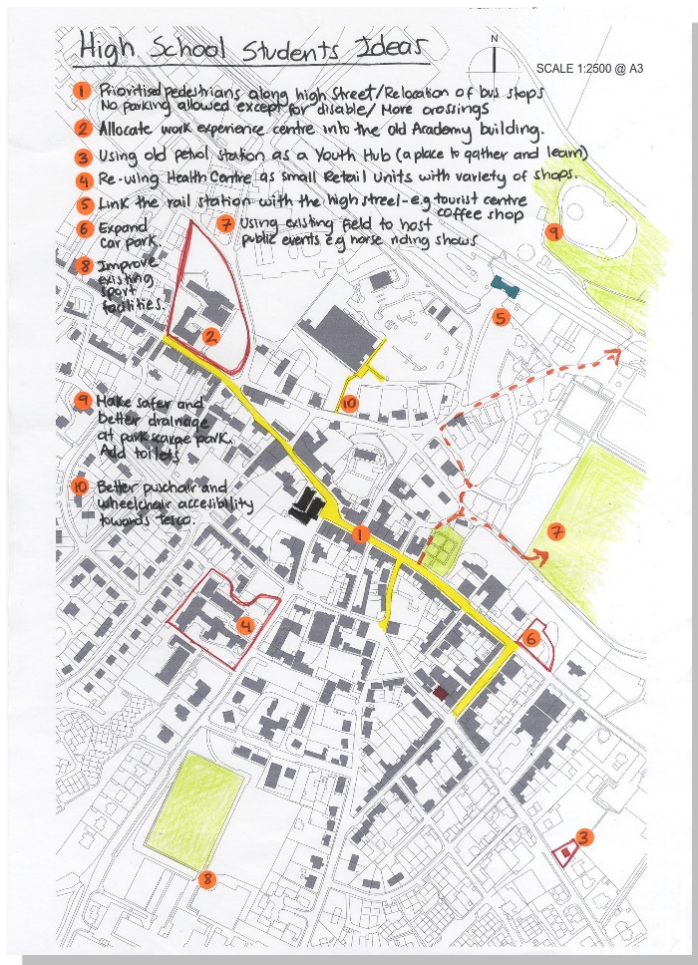 High School Students Ideas
N
SCALE 1:2500 @ A3
1 Prioritised pedestrians along high Street/Relocation of bus stops
No parking allowed except for disable/ More crossings
2 Allocate work experience centre into the old Academy building.
3 Using old petrol station as a Youth Hub (a place to gather and learn)
4 Re-using Health Centre as small Retail Units with variety of shops.
5 Link the rail station with the high street-e.g tourist centre
coffee shop
6 Expand
car park.
7 Using existing field to host
public events e.g horse riding shows
8 Improve
existing
sport
facilities.
9 Make safer and
better drainage
at park scarge park.
Add toilets
10 Better puschair and
wheelchair accesibility
towards tesco.
9
5
2
10
1
7
4
6
3
8